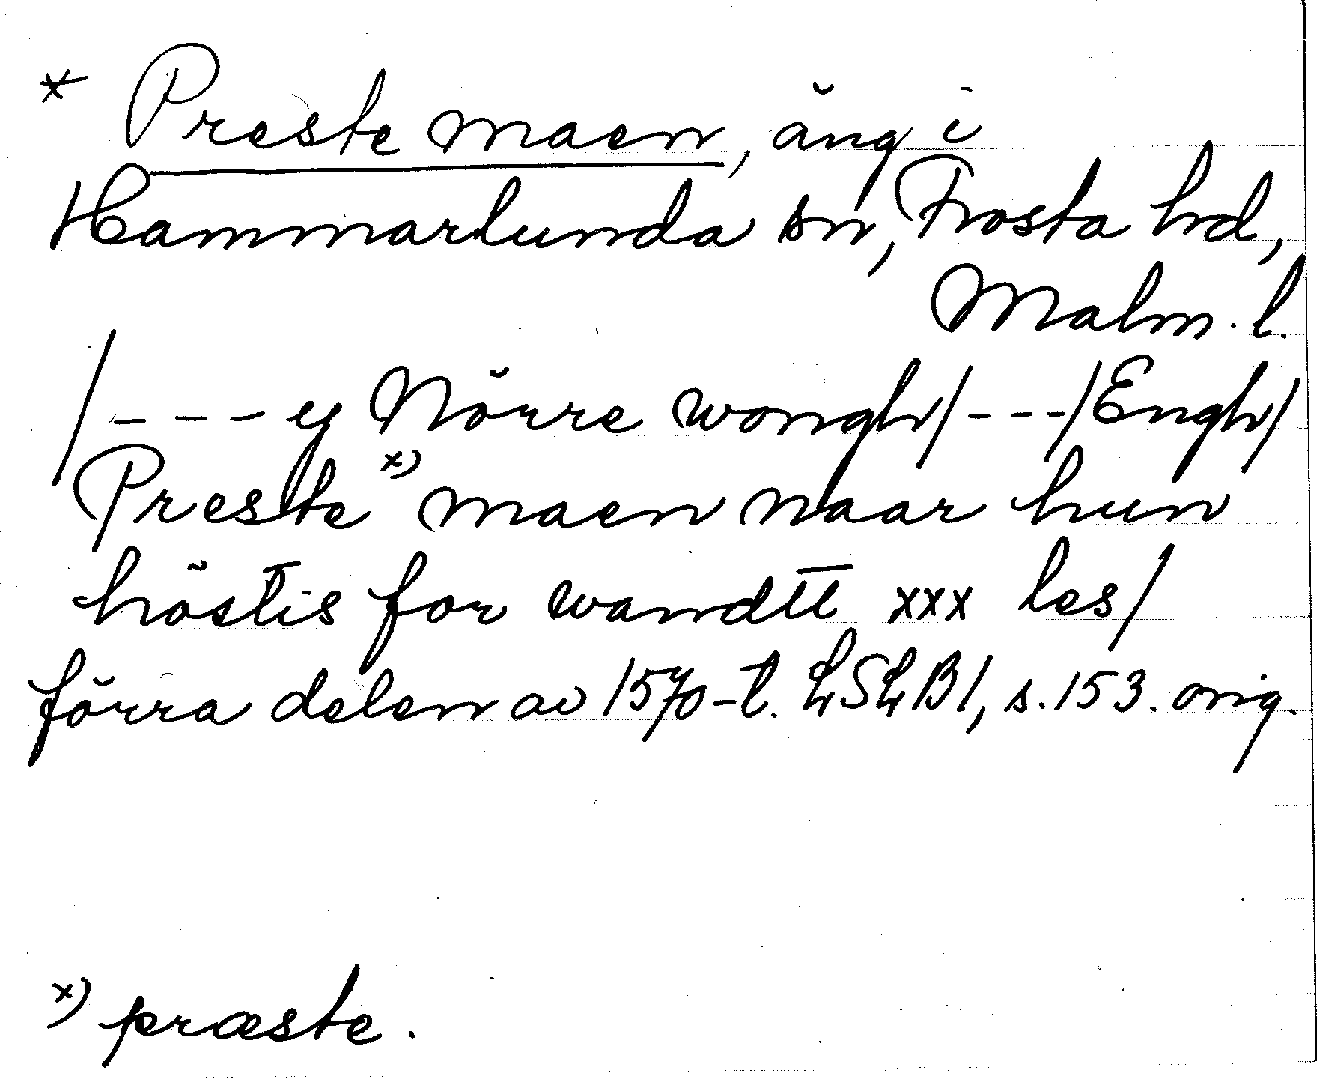 * Preste maen, äng i
Hammarlunda sn, Frosta hd,
Malm. l.
/- - - y Nörre wongh/- - -/Engh/
Preste x) maen naar hun
höstis for wandtt xxx les/
förra delen av 1570-t. LSLB1, s. 153. orig.
x) præste.